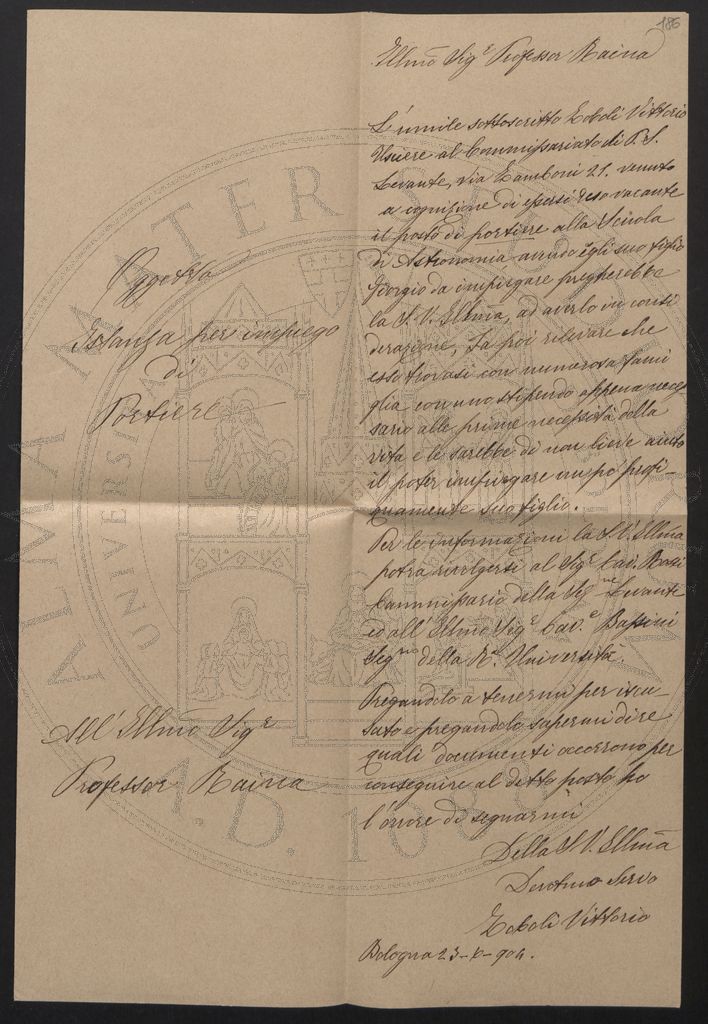 186
Oggetto
Istanza per impiego
di
Portiere
All' Illmo Sigr
Professor Raina
Illmo Sigr Professor Raina
L'umile sottoscritto Zoboli Vittorio
Usciere al Commissariato di P. S.
Levante, via Zamboni 21. venuto
a cognizione di essersi reso vacante
il posto di portiere alla Scuola
di Astronomia avendo egli suo figlio
Giorgio da impiegare pregherebbe
la S. V. Illma, ad averlo in consi
derazione, Fa poi rilevare che
esso trovasi con numerosa fami
glia con uno stipendio appena neces
sario alle prime necessità della
vita e le sarebbe di non lieve aiuto
il poter impiegare un po profi-
quamente suo figlio.
Per le informazioni la S. V. Illma
potrà rivolgersi al Sigr Cav. Rosi
Commissario della Levante
ed all' Illmo Sigr Cav.e Bassini
Segrio della Ra. Università.
Pregandola a tenermi per iscu
sato e pregandola sapermi dire
quali documenti occorrono per
conseguire al detto posto ho
l'onore di segnarmi
Della S. V. Illma
Devotmo Servo
Zoboli Vittorio
Bologna 23-6-904.
ALMA MATER STUDIORUM
UNIVERSI
A.D. 1088